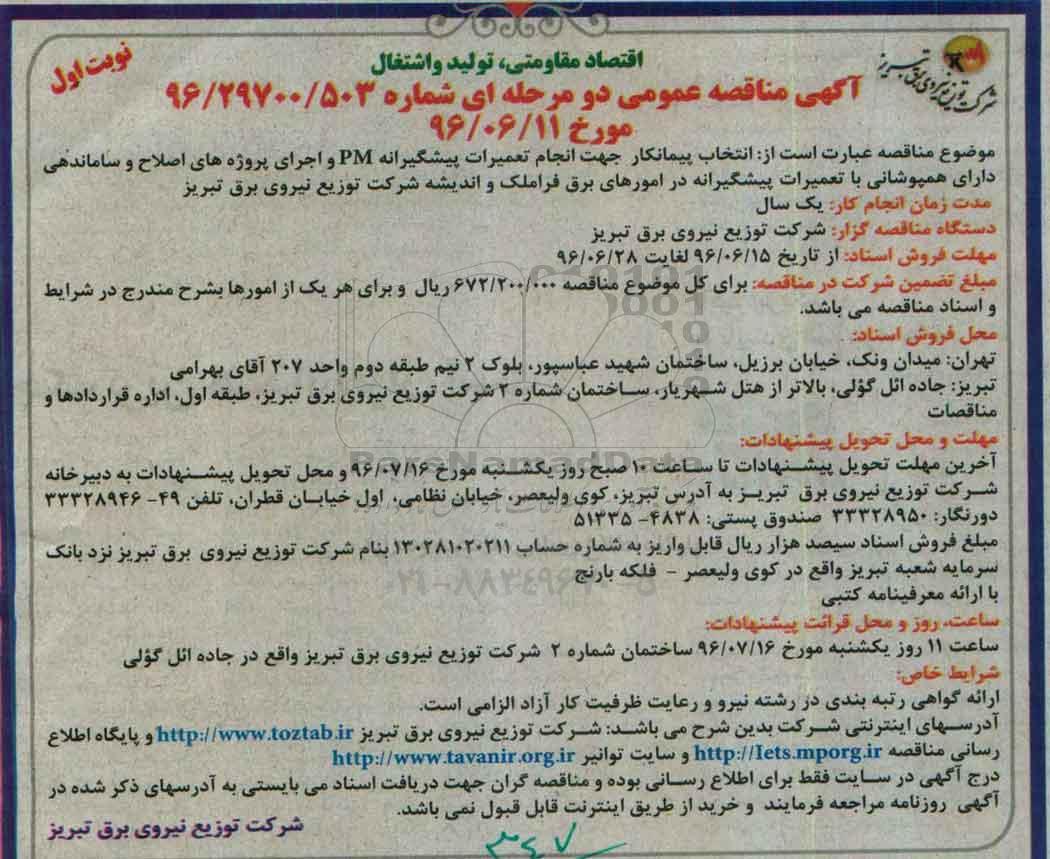 شرکت توزیع نیروی برق تبریز
نوبت اول
اقتصاد مقاومتی، تولید واشتغال
آگهی مناقصه عمومی دو مرحله ای شماره ۹۶/۲۹۷۰۰/۵۰۳
مورخ ۹۶/۰۶/۱۱
موضوع مناقصه عبارت است از: انتخاب پیمانکار جهت انجام تعمیرات پیشگیرانه PM و اجرای پروژه های اصلاح و ساماندهی
دارای همپوشانی با تعمیرات پیشگیرانه در امورهای برق فراملک و اندیشه شرکت توزیع نیروی برق تبریز
مدت زمان انجام کار: یک سال
دستگاه مناقصه گزار: شرکت توزیع نیروی برق تبریز
مهلت فروش اسناد: از تاریخ ۹۶/۰۶/۱۵ لغایت ۹۶/۰۶/۲۸
مبلغ تضمین شرکت در مناقصه: برای کل موضوع مناقصه ۶۷۲/۲۰۰/۰۰۰ ریال و برای هر یک از امورها بشرح مندرج در شرایط
و اسناد مناقصه می باشد.
محل فروش اسناد:
تهران: میدان ونک، خیابان برزیل، ساختمان شهید عباسپور، بلوک ۲ نیم طبقه دوم واحد ۲۰۷ آقای بهرامی
تبریز: جاده ائل گؤلی، بالاتر از هتل شهریار، ساختمان شماره ۲ شرکت توزیع نیروی برق تبریز، طبقه اول، اداره قراردادها و
مناقصات
مهلت و محل تحویل پیشنهادات:
آخرین مهلت تحویل پیشنهادات تا ساعت ۱۰ صبح روز یکشنبه مورخ ۹۶/۰۷/۱۶ و محل تحویل پیشنهادات به دبیرخانه
شرکت توزیع نیروی برق تبریز به آدرس تبریز، کوی ولیعصر، خیابان نظامی، اول خیابان قطران، تلفن ۴۹- ۳۳۳۲۸۹۴۶
دورنگار: ۳۳۳۲۸۹۵۰ صندوق پستی: ۴۸۳۸- ۵۱۳۳۵
مبلغ فروش اسناد سیصد هزار ریال قابل واریز به شماره حساب ۱۳۰۲۸۱۰۲۰۲۱۱ بنام شرکت توزیع نیروی برق تبریز نزد بانک
سرمایه شعبه تبریز واقع در کوی ولیعصر - فلکه بارنج
با ارائه معرفینامه کتبی
ساعت، روز و محل قرائت پیشنهادات:
ساعت ۱۱ روز یکشنبه مورخ ۹۶/۰۷/۱۶ ساختمان شماره ۲ شرکت توزیع نیروی برق تبریز واقع در جاده ائل گؤلی
شرایط خاص:
ارائه گواهی رتبه بندی در رشته نیرو و رعایت ظرفیت کار آزاد الزامی است.
آدرسهای اینترنتی شرکت بدین شرح می باشد: شرکت توزیع نیروی برق تبریز http://www.toztab.ir و پایگاه اطلاع
رسانی مناقصه http://Iets.mporg.ir و سایت توانیر http://www.tavanir.org.ir
درج آگهی در سایت فقط برای اطلاع رسانی بوده و مناقصه گران جهت دریافت اسناد می بایستی به آدرسهای ذکر شده در
آگهی روزنامه مراجعه فرمایند و خرید از طریق اینترنت قابل قبول نمی باشد.
شرکت توزیع نیروی برق تبریز
۳۴۷
ParsNamadData